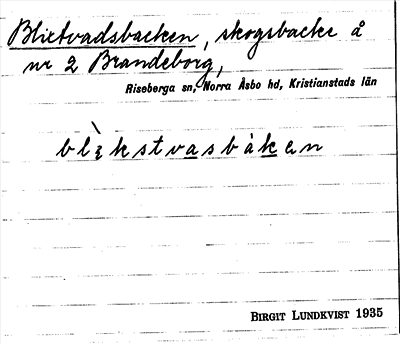 Blixtvadsbacken, skogsbacke å
nr 2 Brandeborg,
Riseberga sn, Norra Åsbo hd, Kristianstads län
BIRGIT LUNDKVIST 1935